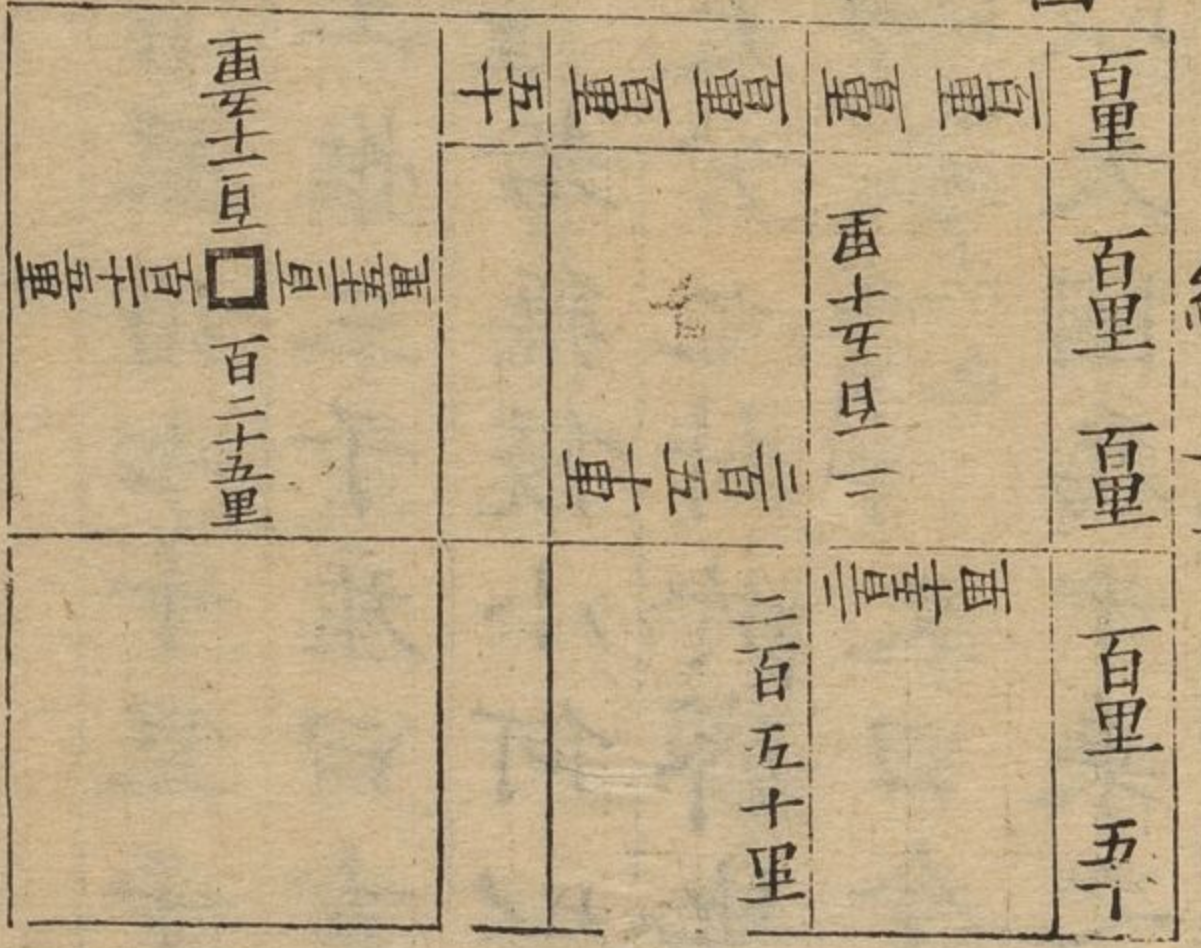 百里
百里
百里
百里
五十
百里
百里
百里
百里
五十
二百五十里
二百五十里
二百五十里
二百五十里
百二十五里
百二十五里
百二十五里
百二十五里